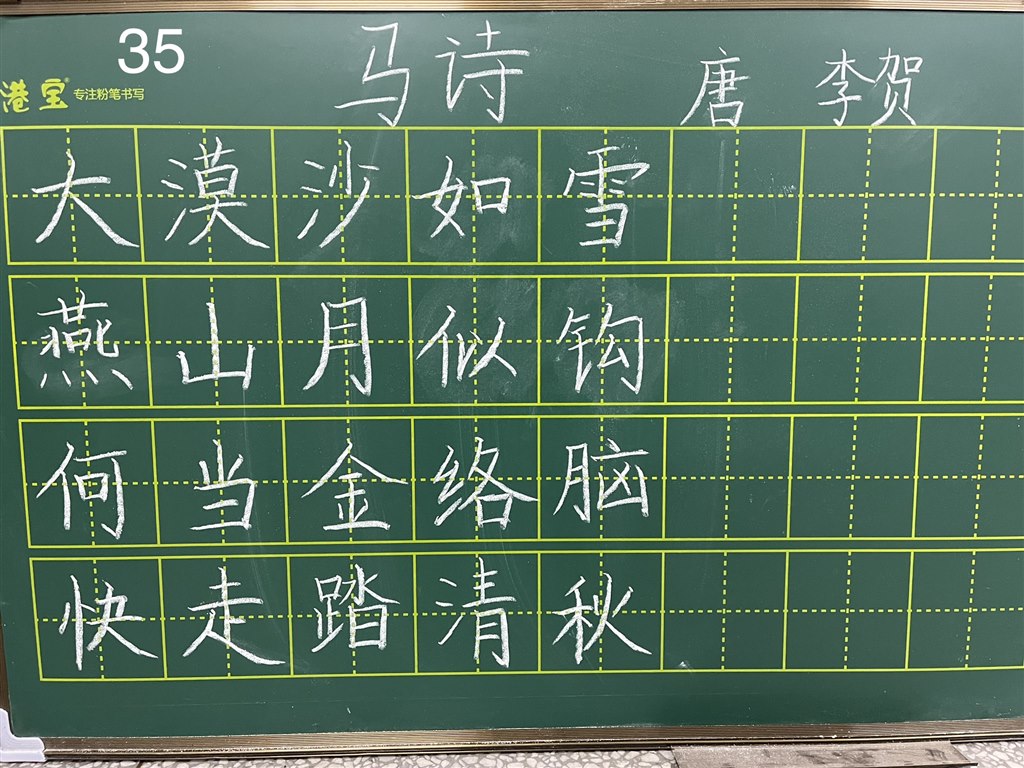 35
马诗
唐 李贺
港宝® 专注粉笔书写
大漠沙如雪
燕山月似钩
何当金络脑
快走踏清秋